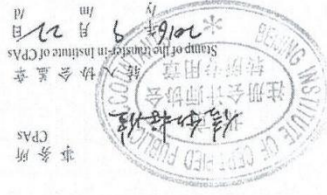 事务所
CPAs
BEIJING INSTITUTE OF CERTIFIED PUBLIC
注册会计师协会
转所专用章
转入协会盖章
Stamp of the transfer-in Institute of CPAs
2016年 9月 日
/y /m /d